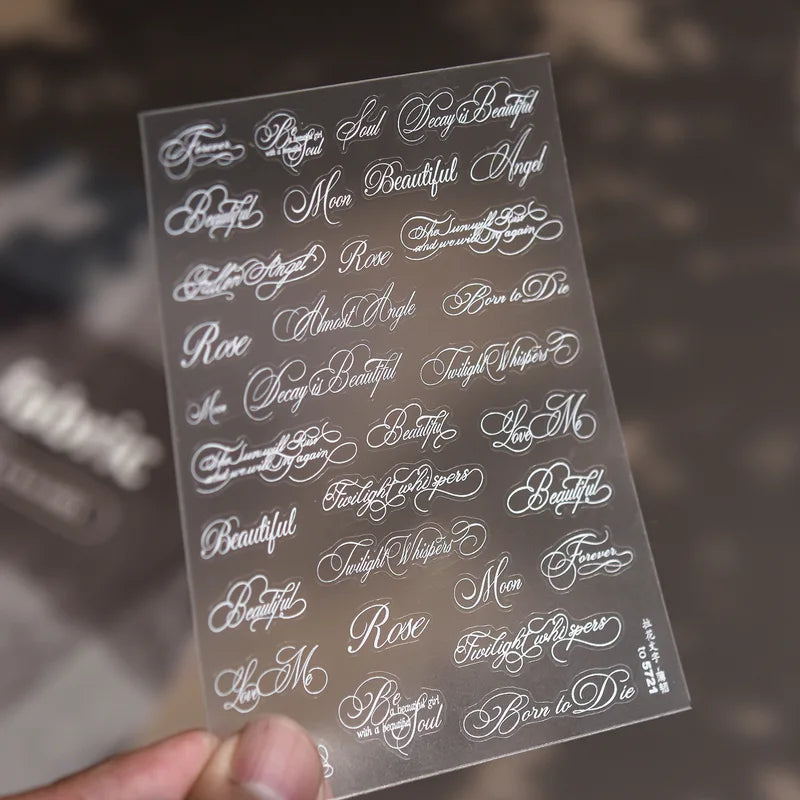 Forever
Be a beautiful girl with a beautiful Soul
Soul
Decay is Beautiful
Beautiful
Moon
Beautiful
Angel
Fallen Angel
Rose
The sun will Rise and we will try again
Rose
Almost Angle
Born to Die
Moon
Decay is Beautiful
Twilight Whispers
The sun will Rise and we will try again
Beautiful
Love Me
Twilight whispers
Beautiful
Beautiful
Twilight Whispers
Forever
Beautiful
Rose
Moon
Twilight whispers
Love Me
Be a beautiful girl with a beautiful Soul
Born to Die
to 5721